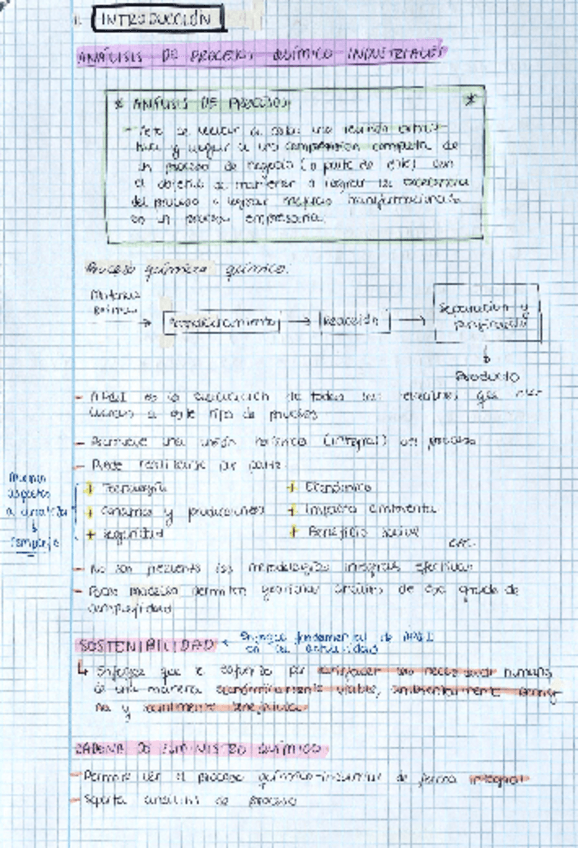 1. INTRODUCCIÓN
ANÁLISIS DE PROCESOS QUÍMICO INDUSTRIALES
* ANÁLISIS DE PROCESOS *
llegar a una comprensión completa de
un proceso de negocio (o parte de este) con
el objetivo de mantener o lograr la excelencia
del proceso o lograr mejoras transformacionales
en un proceso empresarial.
Proceso químico:
Materias primas → → Reacción → Separación y purificación
↓
Producto
- APQI es la evaluación de todos los elementos que
a este tipo de procesos
- Promueve una visión (integral) del proceso
- Puede realizarse por parte:
+ Tecnología + Económico
+ y + Impacto ambiental
+ Seguridad + Beneficio social
etc.
aspectos
a analizar
↓
complejo
- No son frecuentes las metodologías integrales efectivas
- Pocos modelos permiten gestionar análisis de ese grado de
complejidad
SOSTENIBILIDAD ← Enfoque fundamental de APQI
en la actualidad
↳ Enfoque que se esfuerza por satisfacer las necesidades humanas
de una manera económicamente viable, ambientalmente
y socialmente beneficiosa
CADENA DE SUMINISTRO QUÍMICO
- Permite ver el proceso químico-industrial de forma integral
- Soporta análisis de proceso